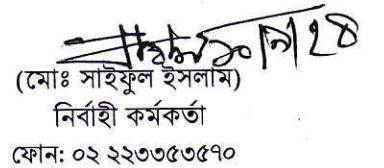 (মোঃ সাইফুল ইসলাম)
নির্বাহী কর্মকর্তা
ফোন: ০২ ২২৩৩৫৩৫৭০